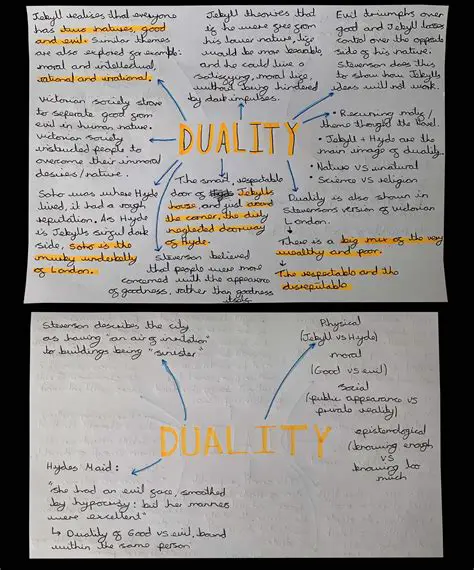 Jekyll realises that everyone
has two natures, good
and evil. Similar themes
are also explored for example:
moral and intellectual,
rational and irrational.
Jekyll theorises that
if he were free from
his lower nature, life
would be more bearable,
and he could live a
satisfying, moral life,
without being hindered
by dark impulses.
Evil triumphs over
good and Jekyll loses
control over the opposite
side of his nature.
Stevenson does this
to show how Jekylls
ideas will not work.
Victorian society strove
to seperate good from
evil in human nature.
Victorian society
instructed people to
overcome their immoral
desires/nature.
DUALITY
• Recurring motif/
theme thought the novel.
• Jekyll + Hyde are the
main image of duality.
• Nature vs unnatural
• Science vs religion
Soho was where Hyde
lived, it had a rough
reputation. As Hyde
is Jekylls sinful dark
side, Soho is the
murky underbelly
of London.
The smart, respectable
door of Jekylls
house, and just around
the corner, the dirty
neglected doorway
of Hyde.
Stevenson believed
that people were more
concerned with the appearance
of goodness, rather than goodness
itself.
Duality is also shown in
Stevensons version of victorian
London.
↓
There is a big mix of the very
wealthy and poor.
↓
The respectable and the
disreputable
Stevenson describes the city
as having "an air of invitation"
to buildings being "sinister"
Physical
(Jekyll vs Hyde)
moral
(Good vs evil)
social
(public appearance vs
private reality)
epistemological
(knowing enough
vs
knowing too
much
DUALITY
Hydes Maid:
"she had an evil face, smoothed
by hypocrisy: but her manners
were excellent"
↳ Duality of Good vs evil, bound
within the same person